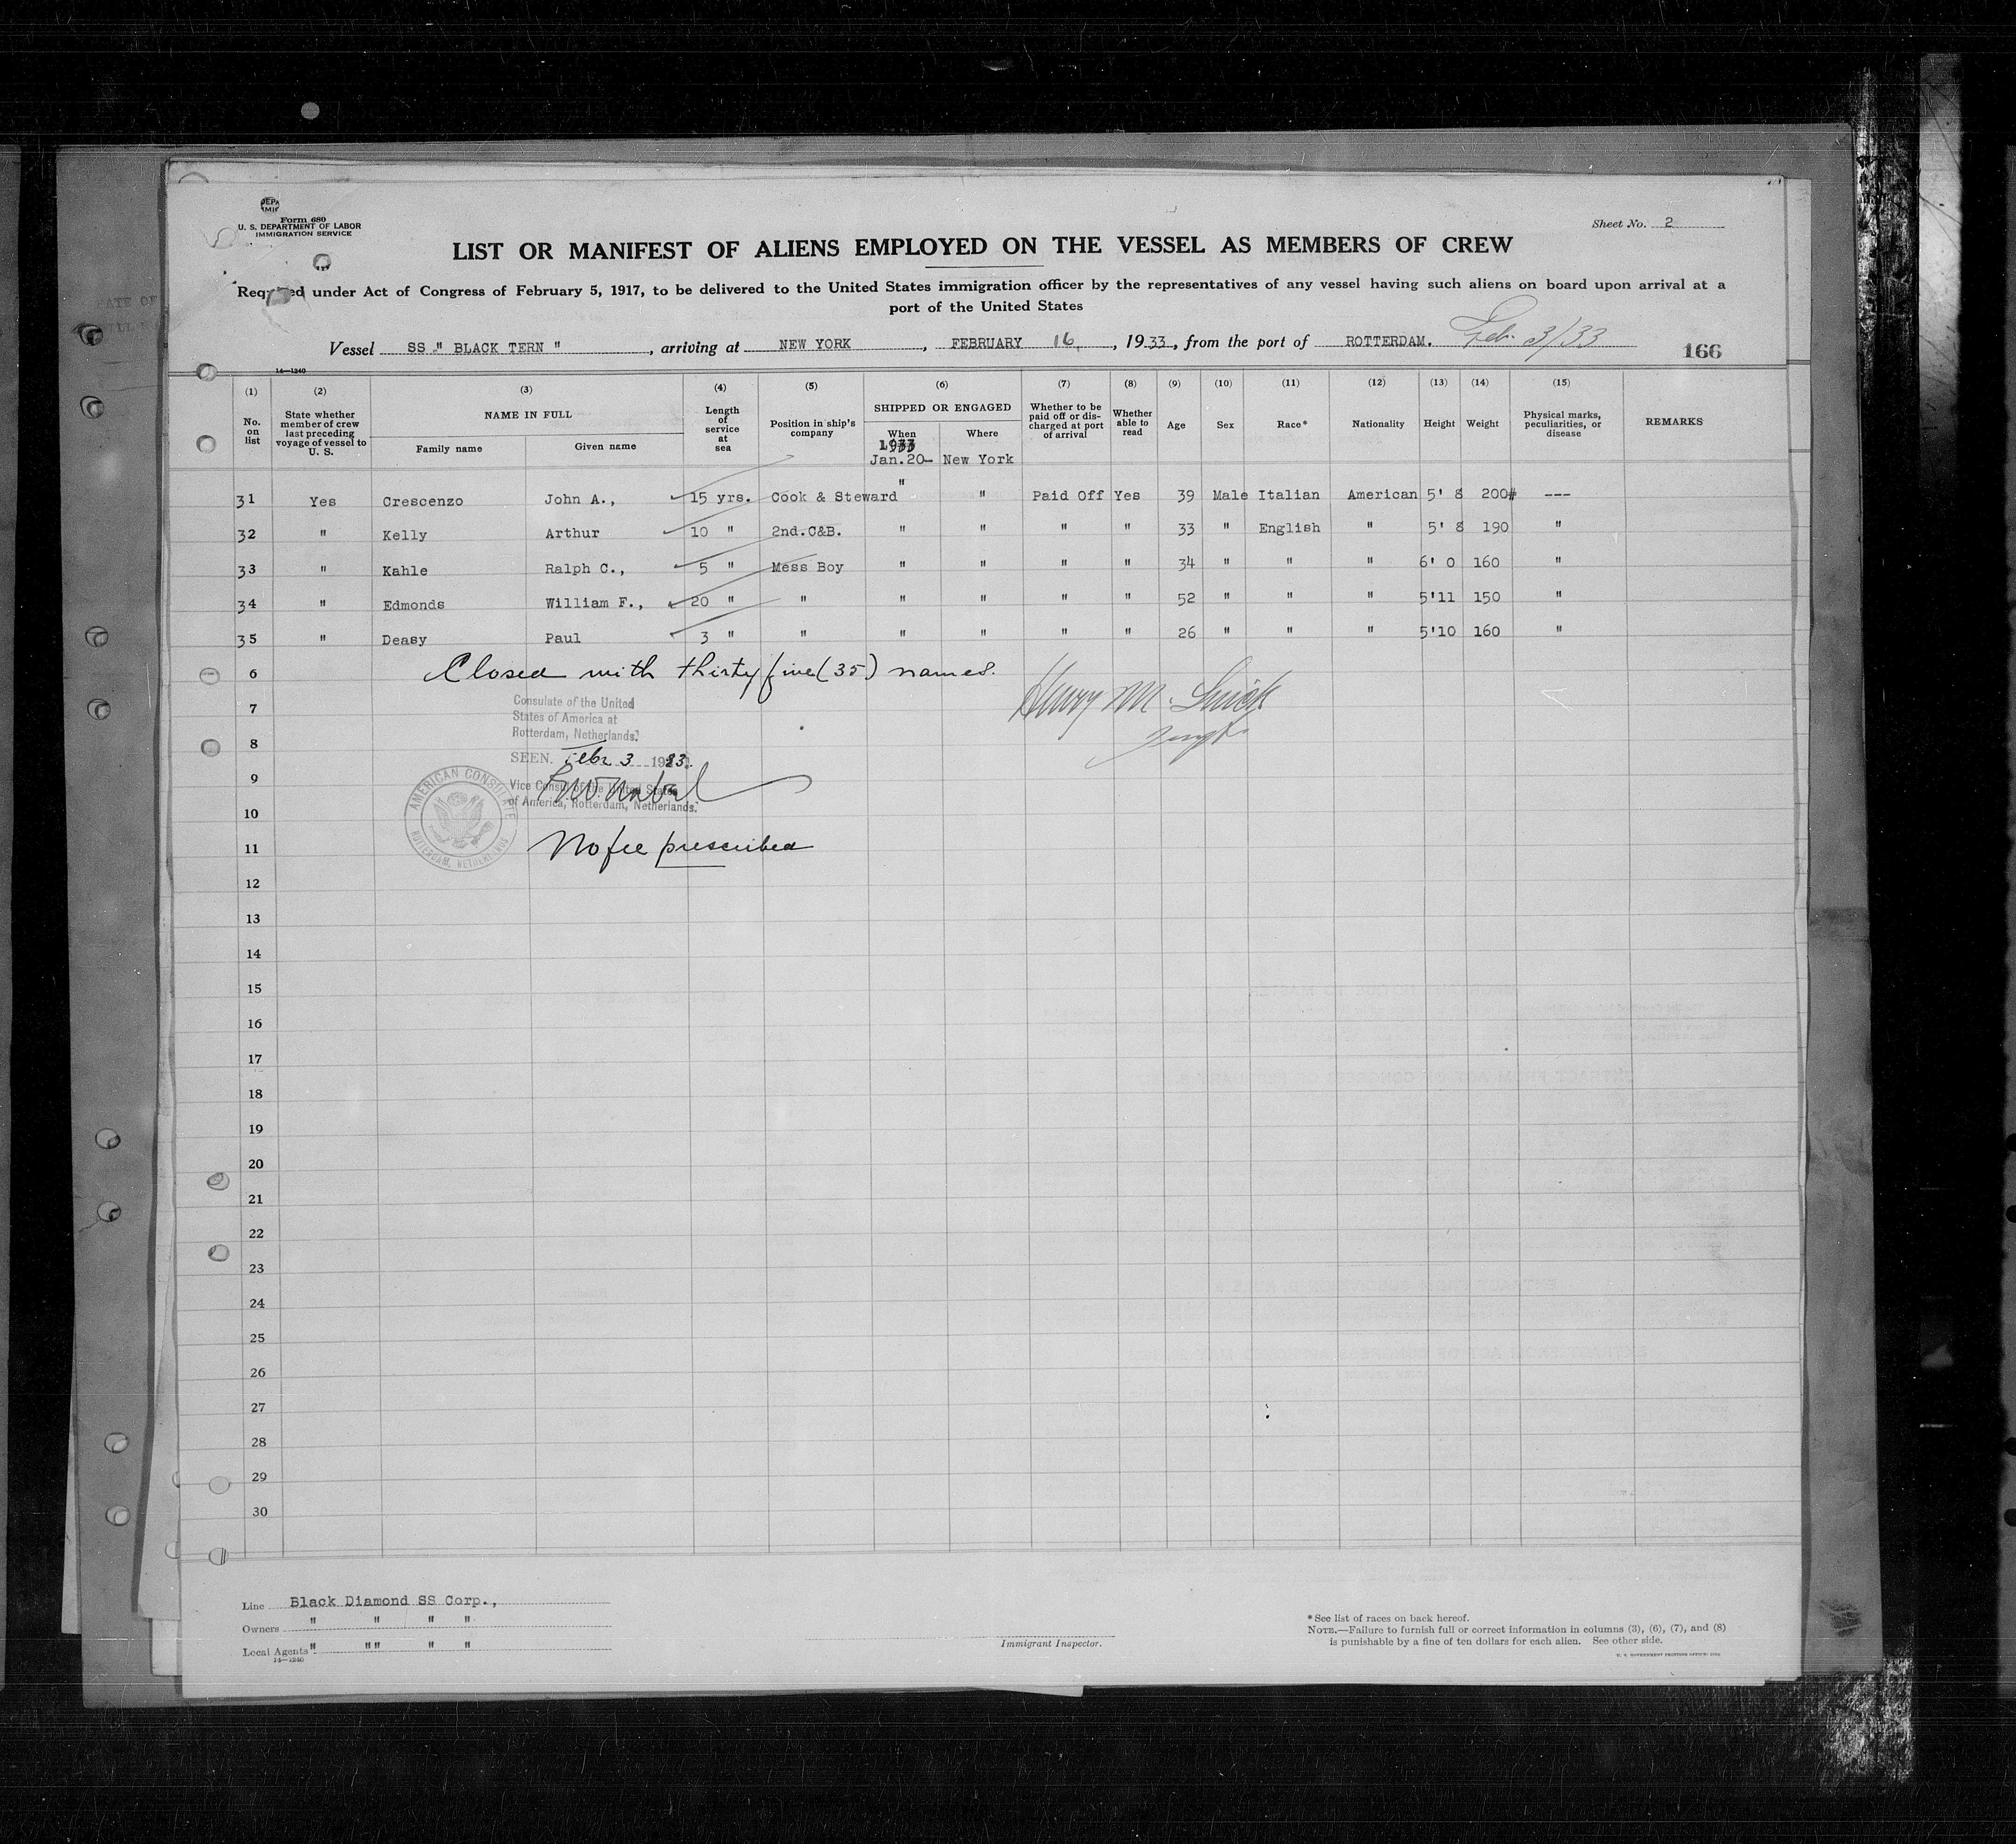 Form 680
U. S. DEPARTMENT OF LABOR
IMMIGRATION SERVICE
Sheet No. 2
LIST OR MANIFEST OF ALIENS EMPLOYED ON THE VESSEL AS MEMBERS OF CREW
Required under Act of Congress of February 5, 1917, to be delivered to the United States immigration officer by the representatives of any vessel having such aliens on board upon arrival at a
port of the United States
Vessel SS " BLACK TERN ", arriving at NEW YORK, FEBRUARY 16, 1933, from the port of ROTTERDAM. Feb. 3/33
166
14—1240
(1) (2) (3) (4) (5) (6) (7) (8) (9) (10) (11) (12) (13) (14) (15)
No. on list
State whether member of crew last preceding voyage of vessel to U. S.
NAME IN FULL
Family name
Given name
Length of service at sea
Position in ship's company
SHIPPED OR ENGAGED
When
Where
Whether to be paid off or discharged at port of arrival
Whether able to read
Age
Sex
Race*
Nationality
Height
Weight
Physical marks, peculiarities, or disease
REMARKS
1933
Jan.20- New York
31 Yes Crescenzo John A., 15 yrs. Cook & Steward " " Paid Off Yes 39 Male Italian American 5' 8 200# ---
32 " Kelly Arthur 10 " 2nd.C&B. " " " " 33 " English " 5' 8 190 "
33 " Kahle Ralph C., 5 " Mess Boy " " " " 34 " " " 6' 0 160 "
34 " Edmonds William F., 20 " " " " " " 52 " " " 5'11 150 "
35 " Deasy Paul 3 " " " " " " 26 " " " 5'10 160 "
6 Closed with thirty five (35) names.
7
Consulate of the United
States of America at
Rotterdam, Netherlands.
Henry M.
8
SEEN. Febr 3 1933.
9
Vice Consul of the United States
of America, Rotterdam, Netherlands.
AMERICAN CONSULATE
ROTTERDAM, NETHERLANDS
10
11 No fee prescribed
12
13
14
15
16
17
18
19
20
21
22
23
24
25
26
27
28
29
30
Line Black Diamond SS Corp.,
Owners " " " "
Local Agents " " " " "
14—1240
Immigrant Inspector.
* See list of races on back hereof.
NOTE.—Failure to furnish full or correct information in columns (3), (6), (7), and (8)
is punishable by a fine of ten dollars for each alien. See other side.